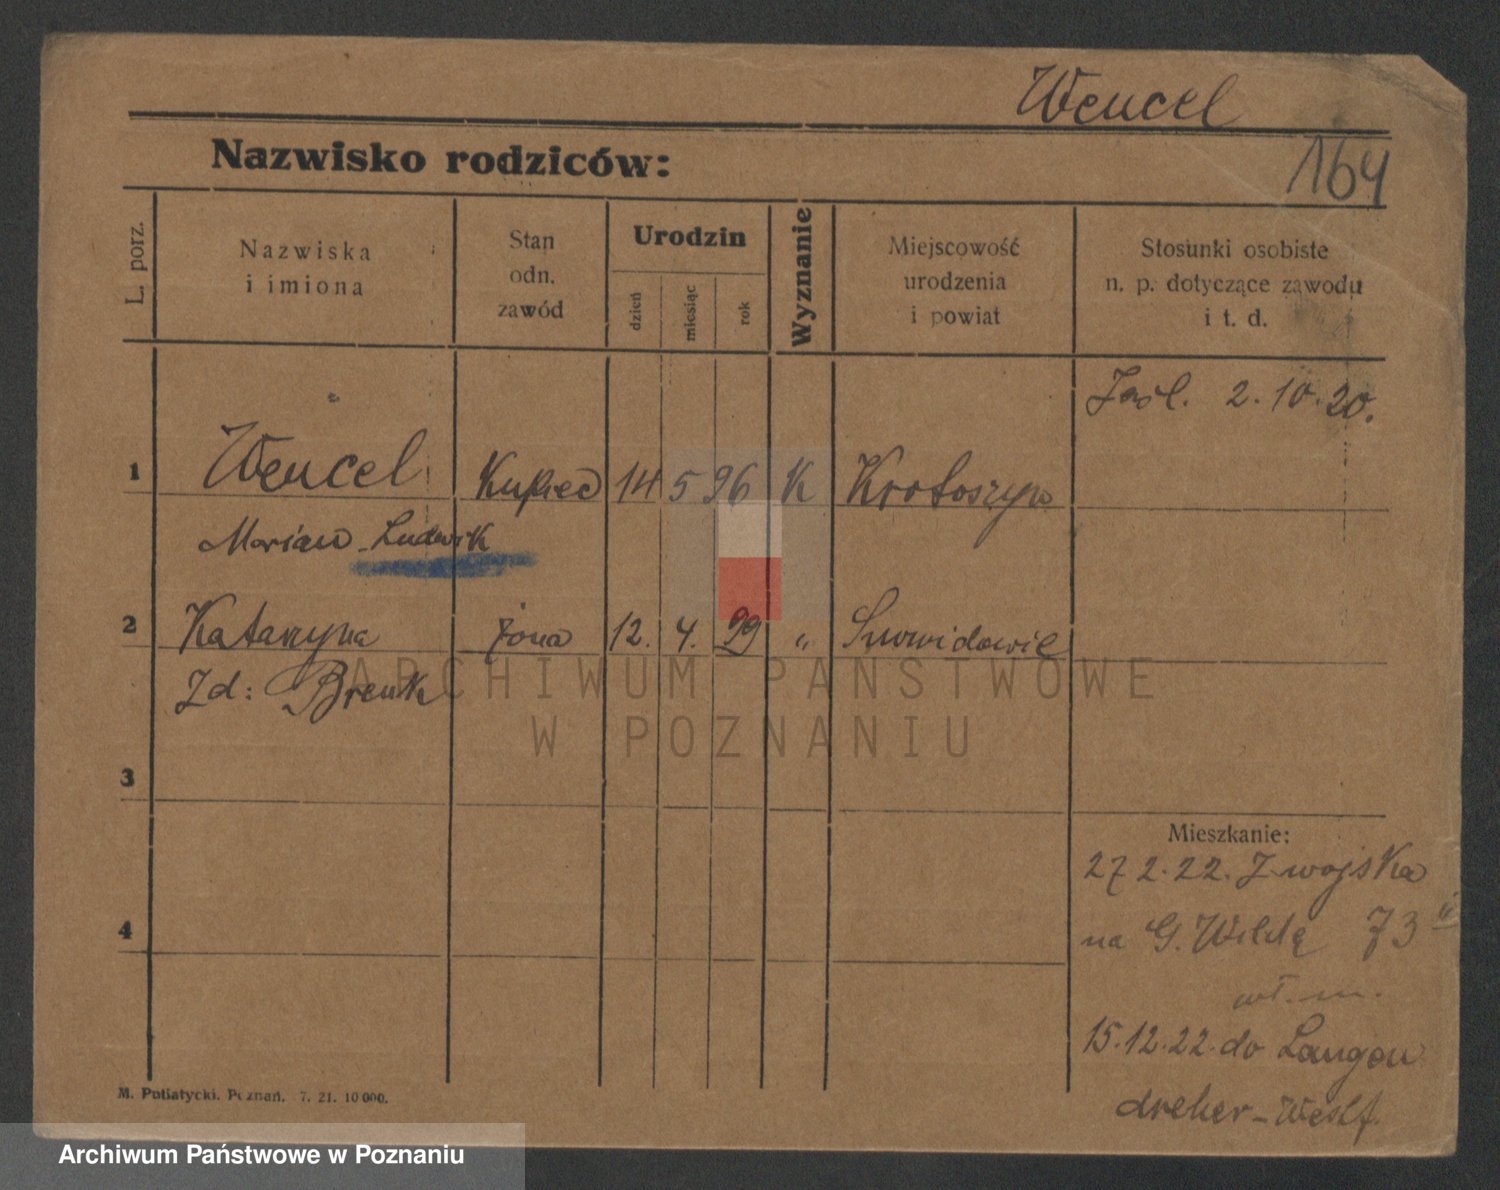 Wencel
Nazwisko rodziców:
164
L. porz.
Nazwiska
i imiona
Stan
odn.
zawód
Urodzin
dzień
miesiąc
rok
Wyznanie
Miejscowość
urodzenia
i powiat
Stosunki osobiste
n. p. dotyczące zawodu
i t. d.
Zaśl. 2.10.20.
1 Wencel Kupiec 14 5 96 K Krotoszyn
Marian-Ludwik
2 Katarzyna żona 12. 4. 99 "
Zd: Brenk
ARCHIWUM PAŃSTWOWE
W POZNANIU
3
Mieszkanie:
27 2.22. Z wojska
4
na G. Wildę 73
wł. m.
15.12.22. do Langen
dreher-Westf.
M. Putiatycki. Poznań. 7. 21. 10000.
Archiwum Państwowe w Poznaniu